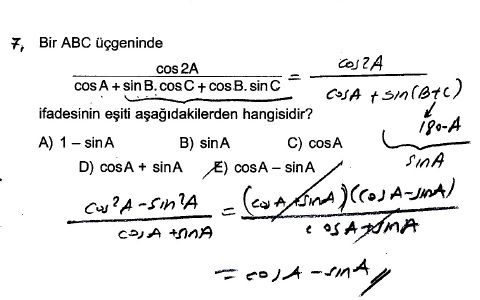 7, Bir ABC üçgeninde
cos2A / (cosA + sinB.cosC + cosB.sinC) = cos2A / (cosA + sin(B+C))
180-A
sinA
ifadesinin eşiti aşağıdakilerden hangisidir?
A) 1 – sinA B) sinA C) cosA
D) cosA + sinA E) cosA – sinA
(cos²A - sin²A) / (cosA + sinA) = (cosA + sinA)(cosA - sinA) / (cosA + sinA)
= cosA - sinA